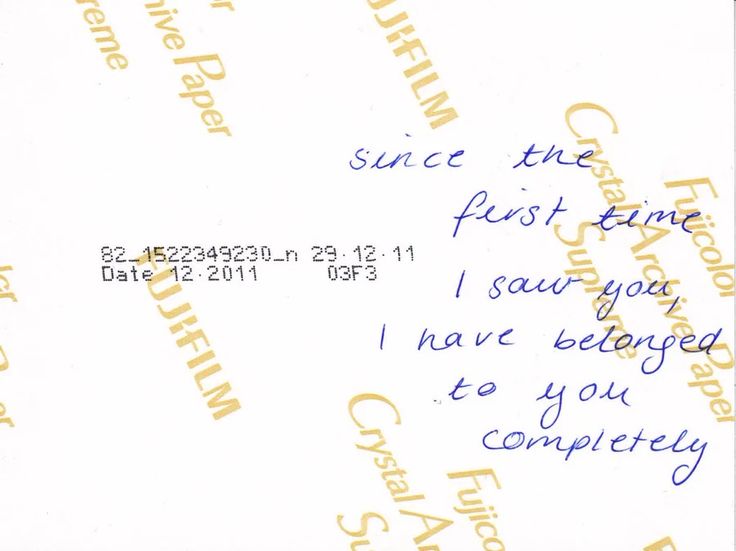 reme
hive Paper
FUJIFILM
Fujicolor
Crystal Archive Paper
Supreme
since the
first time
I saw you,
I have belonged
to you
completely
82_1522349230_n 29·12·11
Date 12·2011 03F3
FUJIFILM
Crystal Ar
Su
Fujico